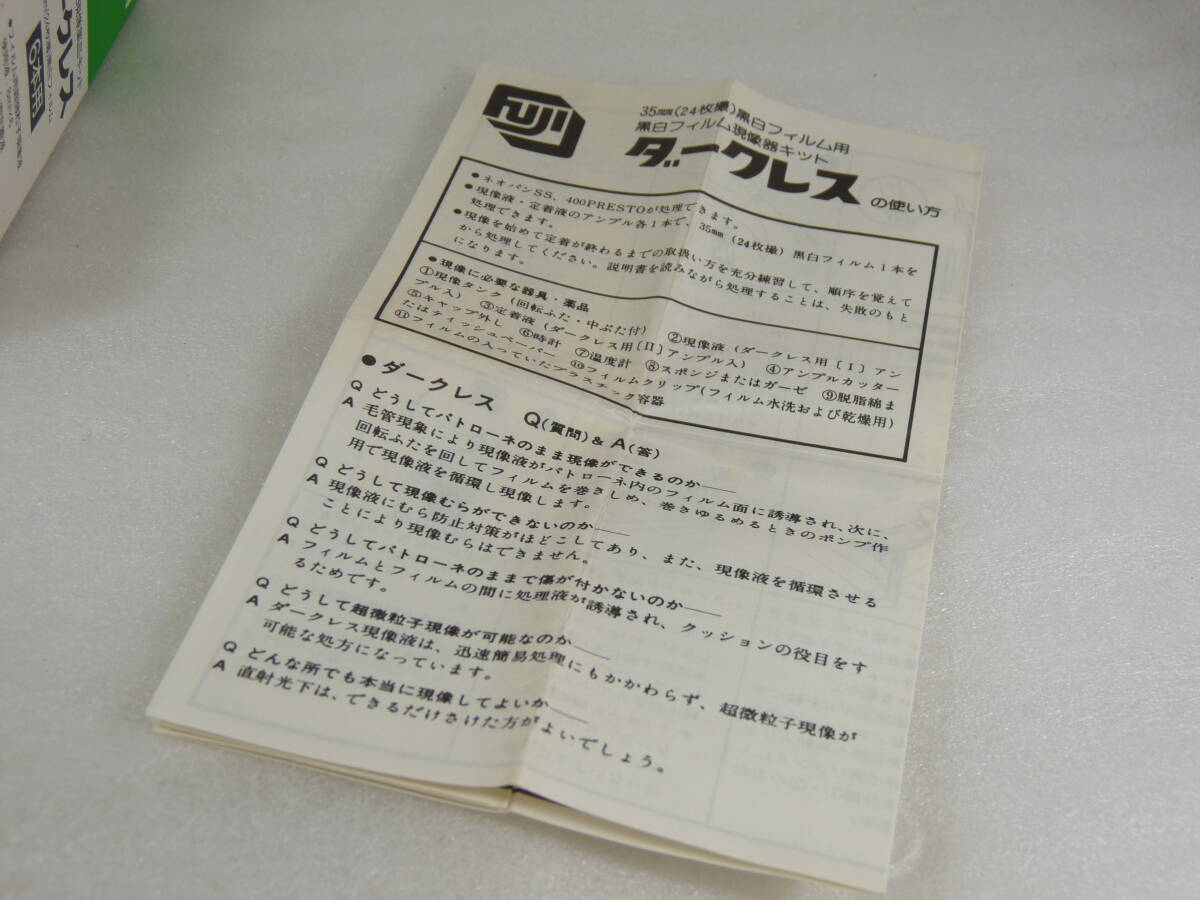 クレス
6本用
FUJI
35mm(24枚撮)黒白フィルム用
黒白フィルム現像器キット
ダークレスの使い方
●ネオパンSS、400PRESTOが処理できます。
●現像液・定着液のアンプル各1本で、35mm(24枚撮)黒白フィルム1本を
処理できます。
●現像を始めて定着が終わるまでの取扱い方を充分練習して、順序を覚えて
から処理してください。説明書を読みながら処理することは、失敗のもと
になります。
●現像に必要な器具・薬品
①現像タンク(回転ふた・中ぶた付) ②現像液(ダークレス用〔I〕アン
プル入) ③定着液(ダークレス用〔II〕アンプル入) ④アンプルカッター
⑤キャップ外し ⑥時計 ⑦温度計 ⑧スポンジまたはガーゼ ⑨脱脂綿ま
たはティッシュペーパー ⑩フィルムクリップ(フィルム水洗および乾燥用)
⑪フィルムの入っていたプラスチック容器
●ダークレス Q(質問)& A(答)
Q どうしてパトローネのまま現像ができるのか――
A 毛管現象により現像液がパトローネ内のフィルム面に誘導され、次に、
回転ふたを回してフィルムを巻きしめ、巻きゆるめるときのポンプ作
用で現像液を循環し現像します。
Q どうして現像むらができないのか――
A 現像液にむら防止対策がほどこしてあり、また、現像液を循環させる
ことにより現像むらはできません。
Q どうしてパトローネのままで傷が付かないのか――
A フィルムとフィルムの間に処理液が誘導され、クッションの役目をす
るためです。
Q どうして超微粒子現像が可能なのか――
A ダークレス現像液は、迅速簡易処理にもかかわらず、超微粒子現像が
可能な処方になっています。
Q どんな所でも本当に現像してよいか――
A 直射光下は、できるだけさけた方がよいでしょう。